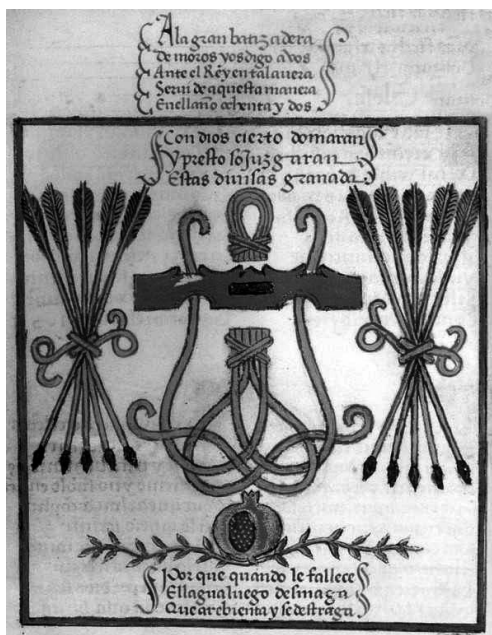 Ala gran batizadera
de moros yos digo avos
Ante el Rey en talavera
Serui de aquesta manera
En el año ochenta y dos
Con dios cierto domaran
Y presto sojuzgaran
Estas diuisas granada
Por que quando le fallece
El agua luego desmaga
Que arebienta y se destraga